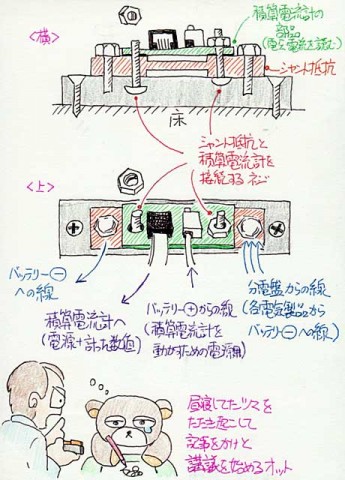 <横>
積算電流計の
部品
(電圧電流を読む)
シャント抵抗
床
シャント抵抗と
積算電流計を
接続するネジ
<上>
バッテリー⊖
への線
積算電流計へ
(電源+計った数値)
バッテリー⊕からの線
(積算電流計を
動かすための電源用)
分電盤からの線
(各電気製品から
バッテリー⊖への線)
昼寝してたツマを
たたき起こして
記事をかけと
講義を始めるオット